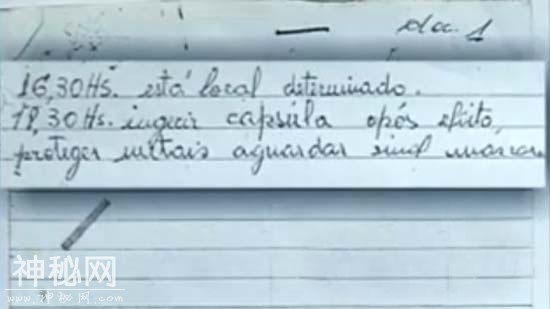 doc. 1
16,30 Hs. está local determinado.
18,30 Hs. ingerir capsúla após efeito,
proteger metais aguardar sinal mascara
神秘网
www.神秘网.COM